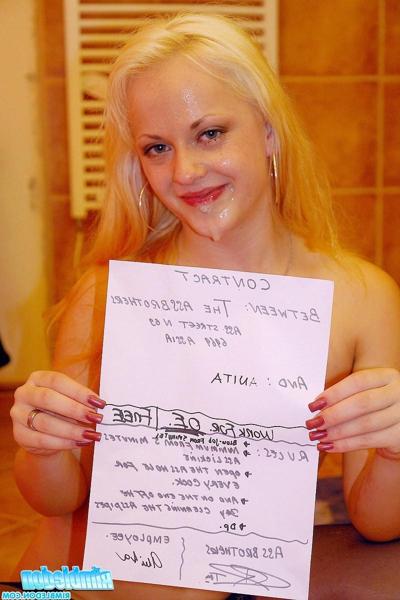 CONTRACT
BETWEEN: THE ASSBROTHERS
ASS STREET N 69
6969 ASSIA
AND: ANITA
WORK FOR FREE
RULES:
→ BLOW-JOB FROM
MINIMUM FROM 5 MINUTES
ASS LICKING
→ OPEN THE ASSHOLE FOR
EVERY COCK
→ AND ON THE END OF THE
DAY CLEANING THE ASSPIPES
→ DP.
ASSBROTHERS
EMPLOYEE:
Anita
Rimbledon
RIMBLEDON.COM